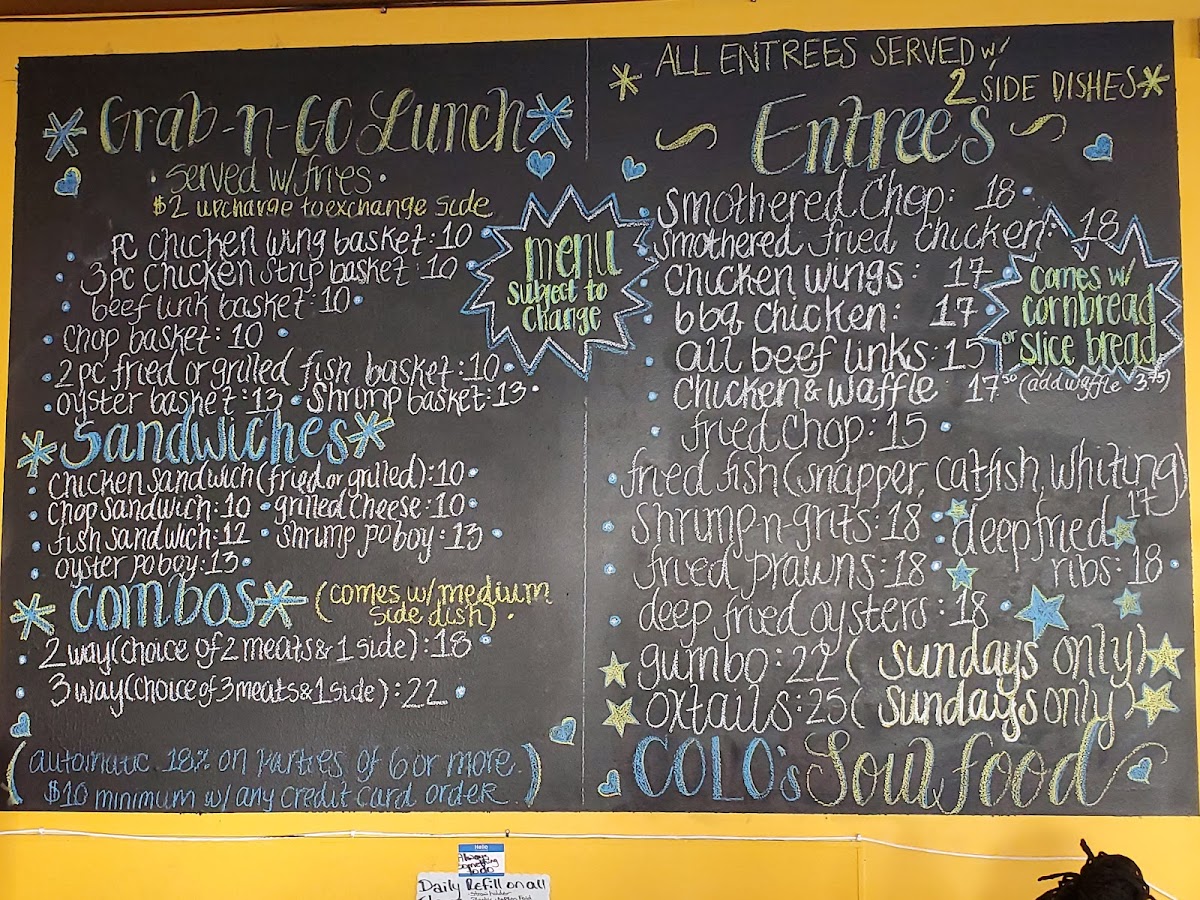 Grab-n-Go Lunch
served w/fries.
$2 upcharge to exchange side
pc chicken wing basket: 10
3pc chicken strip basket: 10
beef link basket: 10
chop basket: 10
2 pc fried or grilled fish basket: 10
oyster basket: 13 • Shrimp basket: 13
menu
subject to
change
Sandwiches
chicken sandwich (fried or grilled): 10
chop sandwich: 10 • grilled cheese: 10
fish sandwich: 12 • shrimp po boy: 13
oyster po boy: 13
Combos (comes w/medium
side dish).
2 way (choice of 2 meats & 1 side): 18
3 way (choice of 3 meats & 1 side): 22
(automatic 18% on parties of 6 or more.
$10 minimum w/ any credit card order.)
ALL ENTREES SERVED w/
2 SIDE DISHES
Entrees
smothered Chop: 18
smothered fried chicken: 18
chicken wings: 17
bbq chicken: 17
all beef links: 15
comes w/
cornbread
or slice bread
chicken & waffle 17.50 (add waffle 3.75)
fried chop: 15
fried fish (snapper, catfish, whiting) 17
shrimp-n-grits: 18
deep fried
ribs: 18
fried prawns: 18
deep fried oysters: 18
gumbo: 22 (sundays only)
oxtails: 25 (sundays only)
COLO's Soul food
Hello
Always
something
to do
Daily Refill on all